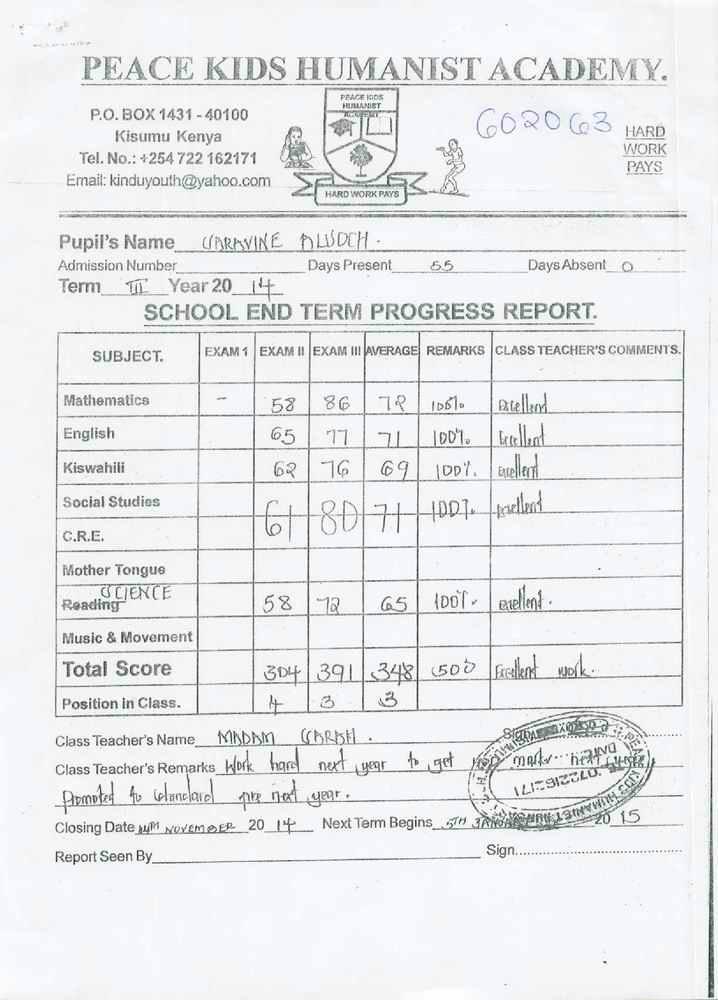 PEACE KIDS HUMANIST ACADEMY.
P.O. BOX 1431 - 40100
Kisumu Kenya
Tel. No.: +254 722 162171
Email: kinduyouth@yahoo.com
PEACE KIDS
HUMANIST
ACADEMY
HARD WORK PAYS
602063
HARD
WORK
PAYS
Pupil's Name
Admission Number Days Present 55 Days Absent 0
Term III Year 20 14
SCHOOL END TERM PROGRESS REPORT.
SUBJECT. EXAM 1 EXAM II EXAM III AVERAGE REMARKS CLASS TEACHER'S COMMENTS.
Mathematics - 58 86 72 100% Excellent
English 65 77 71 100% Excellent
Kiswahili 62 76 69 100% Excellent
Social Studies
C.R.E. 61 80 71 100% Excellent
Mother Tongue
SCIENCE
Reading 58 72 65 100% Excellent.
Music & Movement
Total Score 304 391 348 500 Excellent work.
Position in Class. 4 3 3
Class Teacher's Name MADAM SARAH. Sign
Class Teacher's Remarks Work hard next year to get marks next
Promoted to standard next year.
Closing Date NOVEMBER 20 14 Next Term Begins 5TH JANUARY 20 15
Report Seen By Sign
0722162171